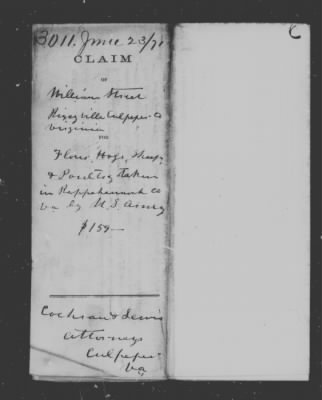 3011. June 23/71
CLAIM
OF
William Street
Rixeyville Culpeper Co
Virginia
FOR
Flour, Hogs, Sheep
& Poultry taken
in Rappahannock Co
Va by U.S. Army
$159—
Cochran & Lewis
Attorneys
Culpeper
Va
C